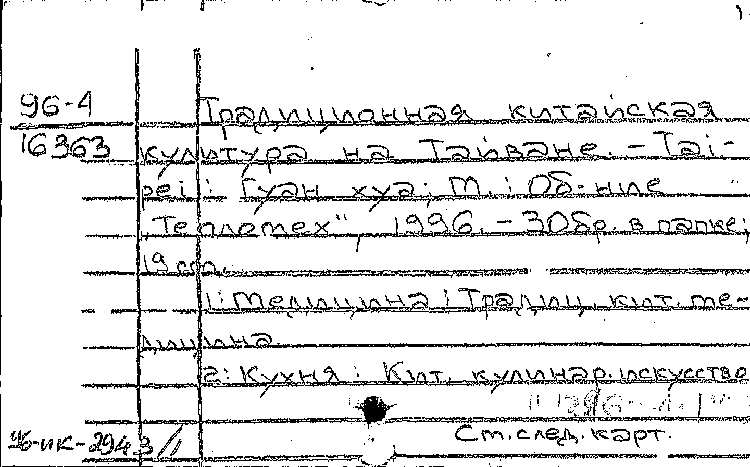 96-4
16363
Традиционная китайская
культура на Тайване. - Tai-
pei : Гуан хуа ; М. : Об-ние
"Теплотех", 1996. - 30 бр. в папке ;
19 см.
1: Медицина : Традиц. кит. ме-
дицина
2: Кухня : Кит. кулинар. искусство
96-ик-2943/1
См. след. карт.